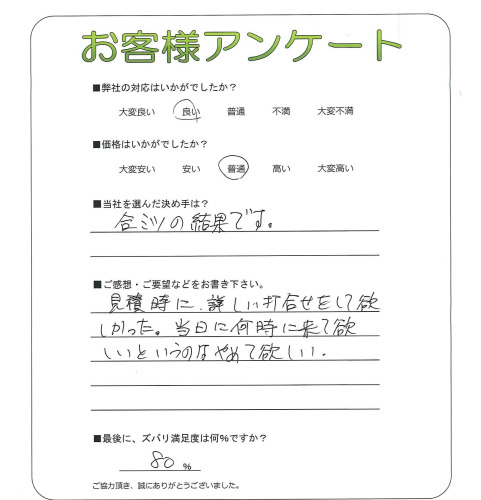 お客様アンケート
■弊社の対応はいかがでしたか？
大変良い 良い 普通 不満 大変不満
■価格はいかがでしたか？
大変安い 安い 普通 高い 大変高い
■当社を選んだ決め手は？
合ミツの結果です。
■ご感想・ご要望などをお書き下さい。
見積時に、詳しい打合せをして欲
しかった。当日に何時に来て欲
しいというのはやめて欲しい。
■最後に、ズバリ満足度は何%ですか？
80 %
ご協力頂き、誠にありがとうございました。